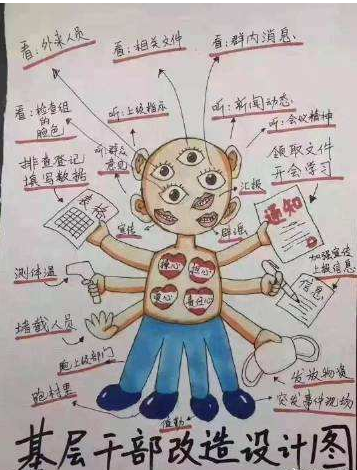 看:外来人员
看:相关文件
看:群内消息
看:检查组
的脸色
听:上级指示
听:新闻动态
听:群众
意见
听:会议精神
排查登记
填写数据
领取文件
开会学习
汇报
表格
通知
宣传
测体温
操心
担心
加强宣传
上报信息
爱心
责任心
信息
堵截人员
跑上级部门
发放物资
跑村里
突发事件现场
值勤
基层干部改造设计图